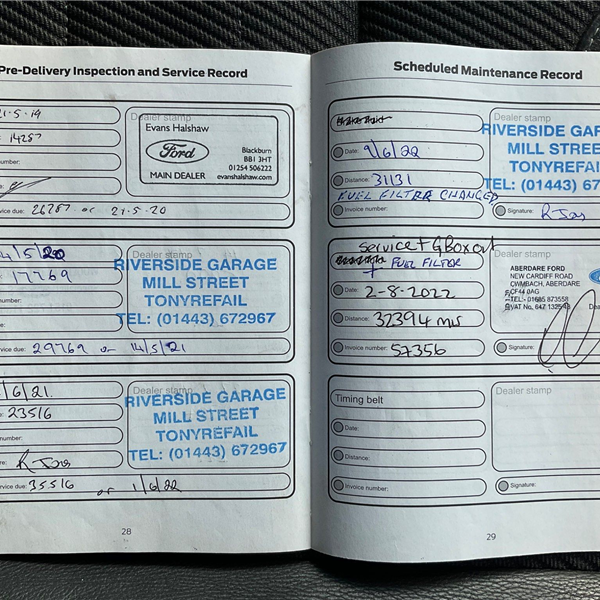 Pre-Delivery Inspection and Service Record
21·5·19
14287
number:
Dealer stamp
Evans Halshaw
Ford
MAIN DEALER
Blackburn
BB1 3HT
01254 506222
evanshalshaw.com
vice due: 26287 or 21·5·20
14/5/20
17769
number:
Dealer stamp
RIVERSIDE GARAGE
MILL STREET
TONYREFAIL
TEL: (01443) 672967
vice due: 29769 or 14/5/21
1/6/21.
23516
number:
re: R Jones
Dealer stamp
RIVERSIDE GARAGE
MILL STREET
TONYREFAIL
TEL: (01443) 672967
vice due: 35516 or 1/6/22
28
Scheduled Maintenance Record
Date: 9/6/22
Distance: 31131
FUEL FILTER CHANGED
Invoice number:
Dealer stamp
RIVERSIDE GAR
MILL STREE
TONYREFA
TEL: (01443) 67
Signature: R Jones
Service + GBox oil
+ FUEL FILTER
Date: 2-8-2022
Distance: 32394 mls
Invoice number: 57356
ABERDARE FORD
NEW CARDIFF ROAD
CWMBACH, ABERDARE
CF44 0AG
TEL: 01685 873558
Signature:
Timing belt
Date:
Distance:
Invoice number:
Dealer stamp
Signature:
29